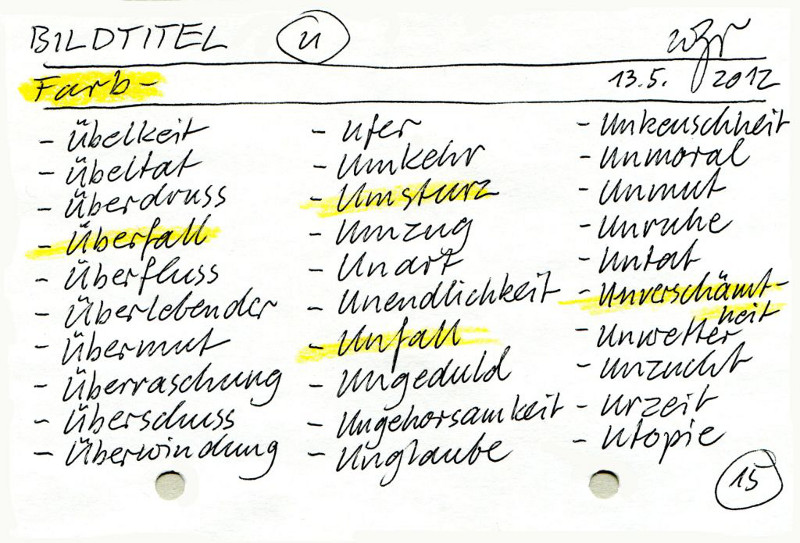 BILDTITEL u
Farb- 13.5. 2012
- Übelkeit
- Übeltat
- Überdruss
- Überfall
- Überfluss
- Überlebender
- Übermut
- Überraschung
- Überschuss
- Überwindung
- Ufer
- Umkehr
- Umsturz
- Umzug
- Unart
- Unendlichkeit
- Unfall
- Ungeduld
- Ungehorsamkeit
- Unglaube
- Unkeuschheit
- Unmoral
- Unmut
- Unruhe
- Untat
- Unverschämt-
heit
- Unwetter
- Unzucht
- Urzeit
- Utopie
15